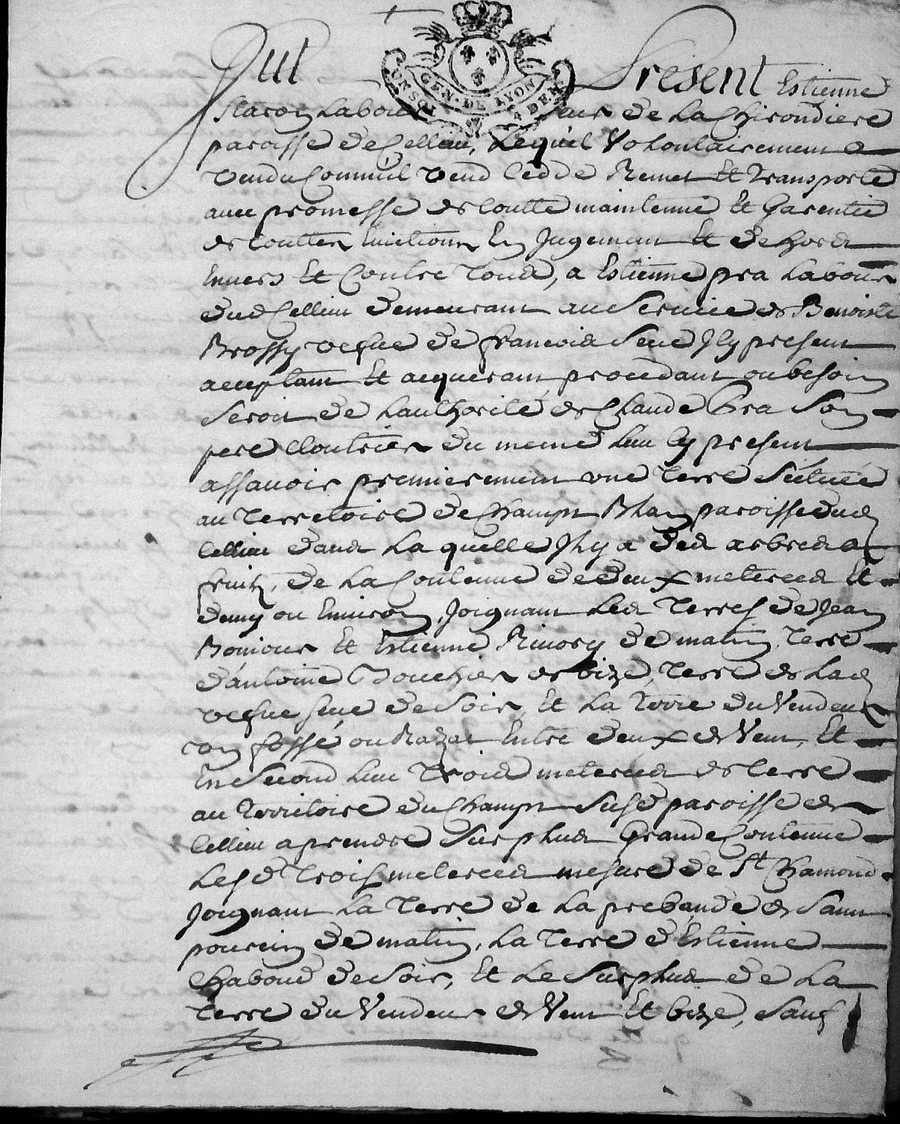 GEN. DE LYON
Fut Présent Estienne
Labou eur de La Chirondiere
paroisse de Cellieu, Lequel Volontairement a
vendu Comme il vend Cedde Remet Et transporte
avec promesse de toutte maintenue Et Garentie
de touttes Evictions En Jugement Et de hors
Envers Et Contre tous, a Estienne pra Labour
dud Cellieu demeurant au Service de Benoiste
Brossy vefue de francois Seue Jcy present
acceptant Et acquerant procedant ou besoin
Seroit de Lauthorité de Claude Pra Son
pere Cloutrier du meme Lieu Cy present
assavoir premierement une Terre Sçituée
au Terretoire de Champt Blan paroisse dud
Cellieu dans La quelle Jl y a des arbres a
fruit, de La Contenue de deux meterees Et
demy ou Environ, Joignant Les Terres de Jean
Bonjour Et Estienne Rivory de matin, Terre
d'antoine Bouchier de bize, Terre de Lad
vefue seue de Soir, Et La Terre du Vendeur
un fossé ou Razat Entre deux de Vent, Et
En Second Lieu Trois meterees de terre
au Territoire du Champt Susd paroisse de
Cellieu a prendre Sur plus Grande Contenue
Lesd Trois meterees mesure de St Chamond
Joignant La Terre de La prebande de Saint
pourcin de matin, La Terre d'Estienne
Chaboud de Soir, Et Le Surplus de La
Terre du Vendeur de Vent Et bize, Sauf